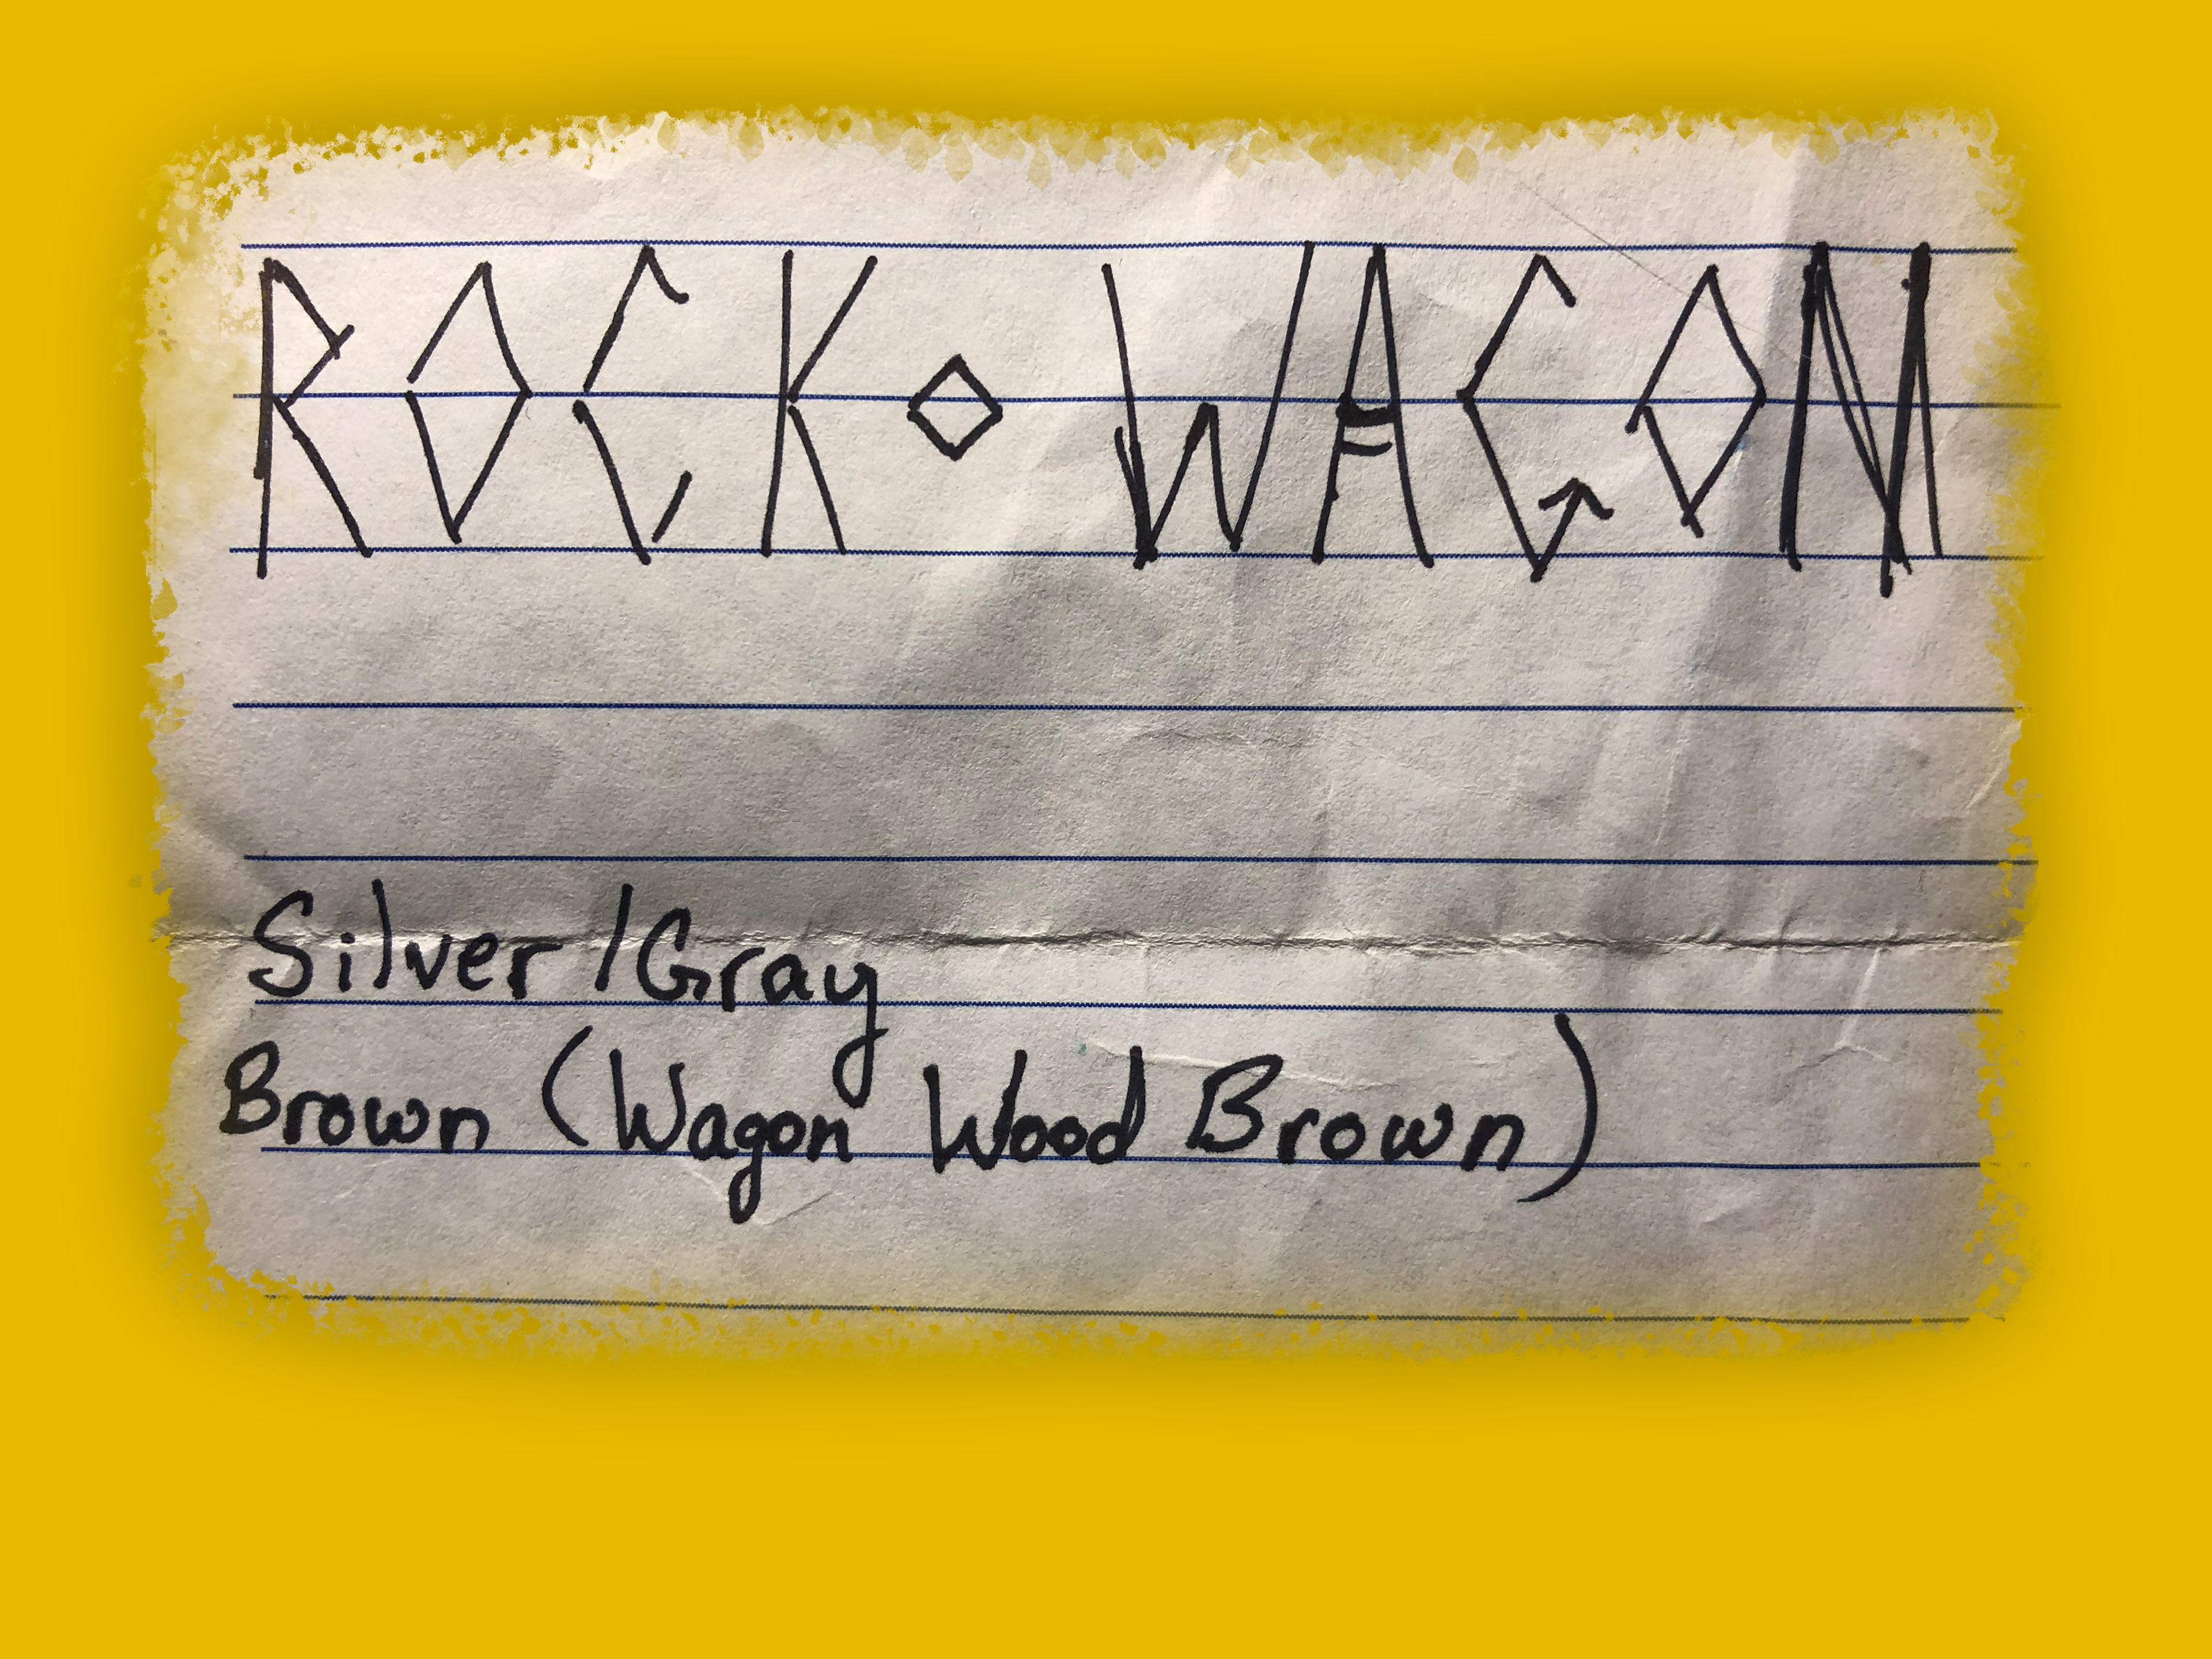 ROCK ◇ WAGON
Silver/Gray
Brown (Wagon Wood Brown)